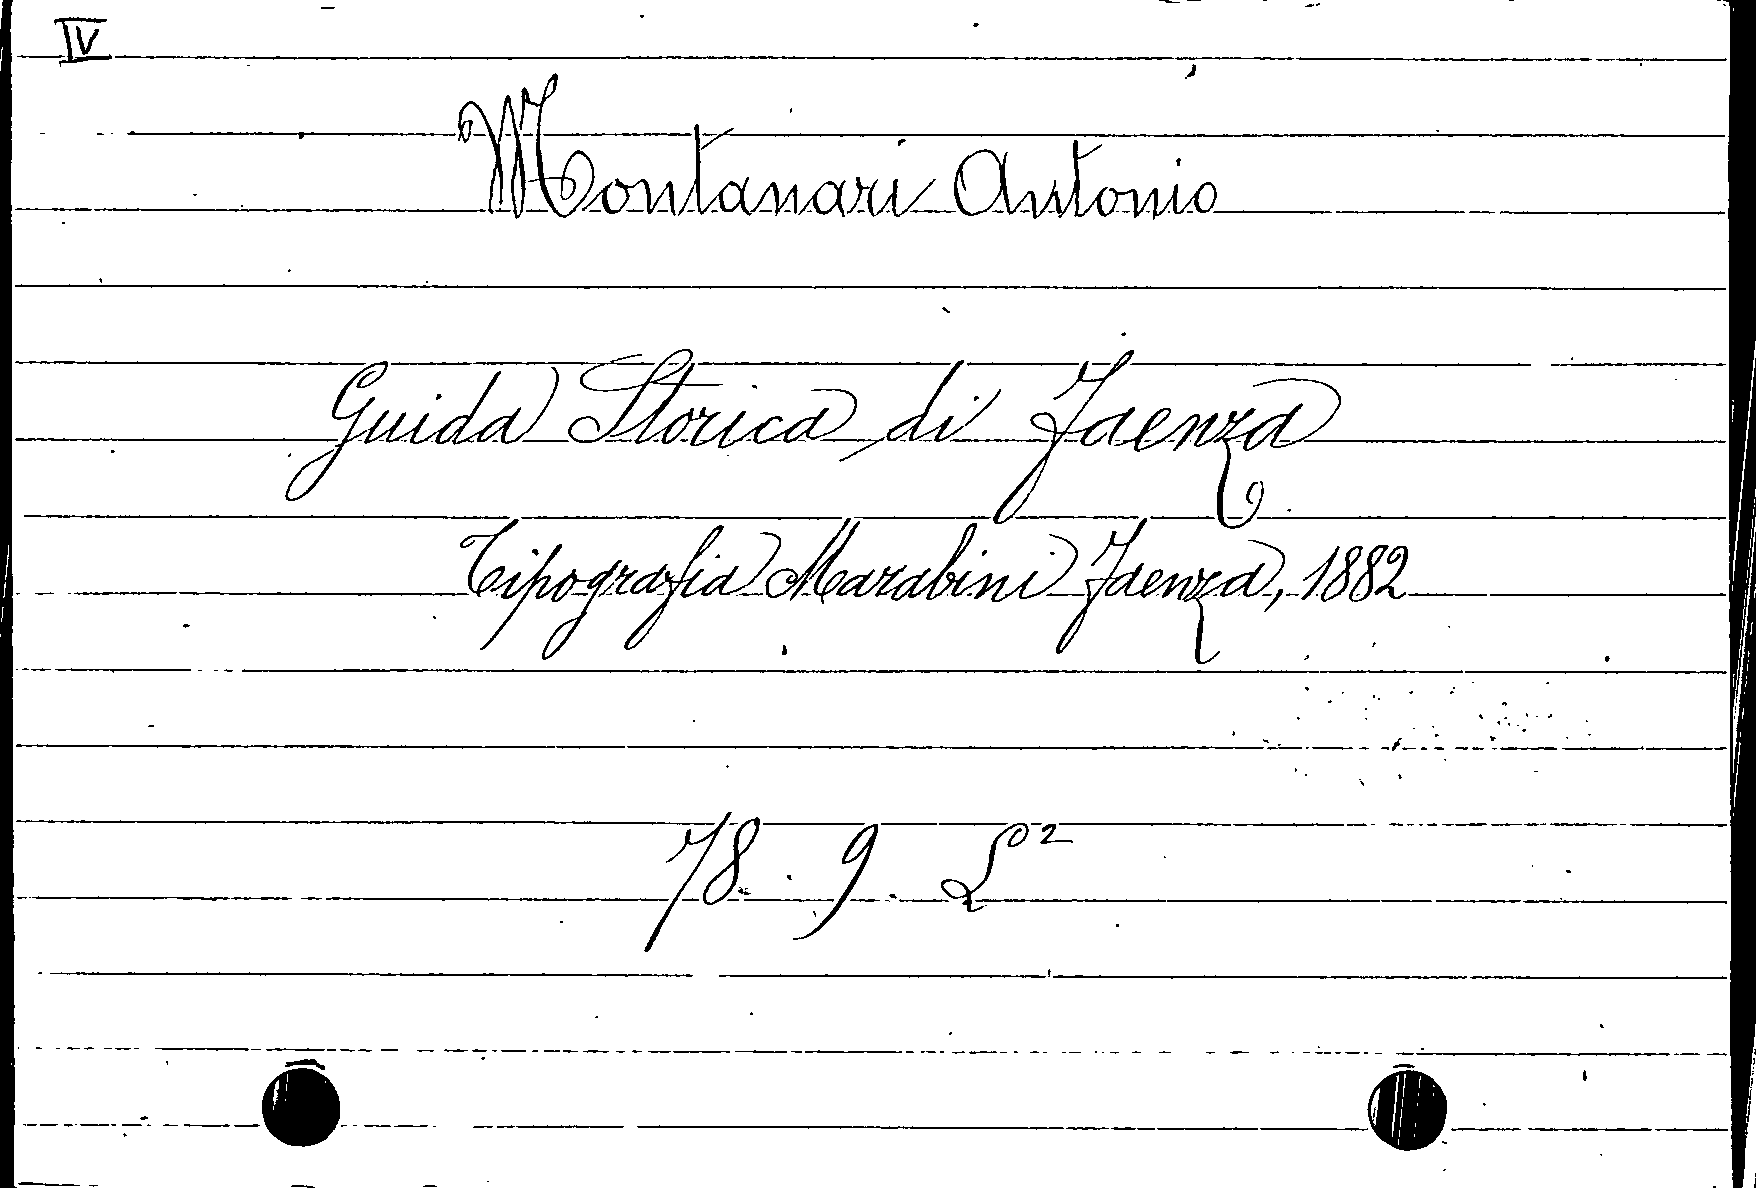 IV
Montanari Antonio
Guida Storica di Faenza
Tipografia Marabini Faenza, 1882
78. 9. L²